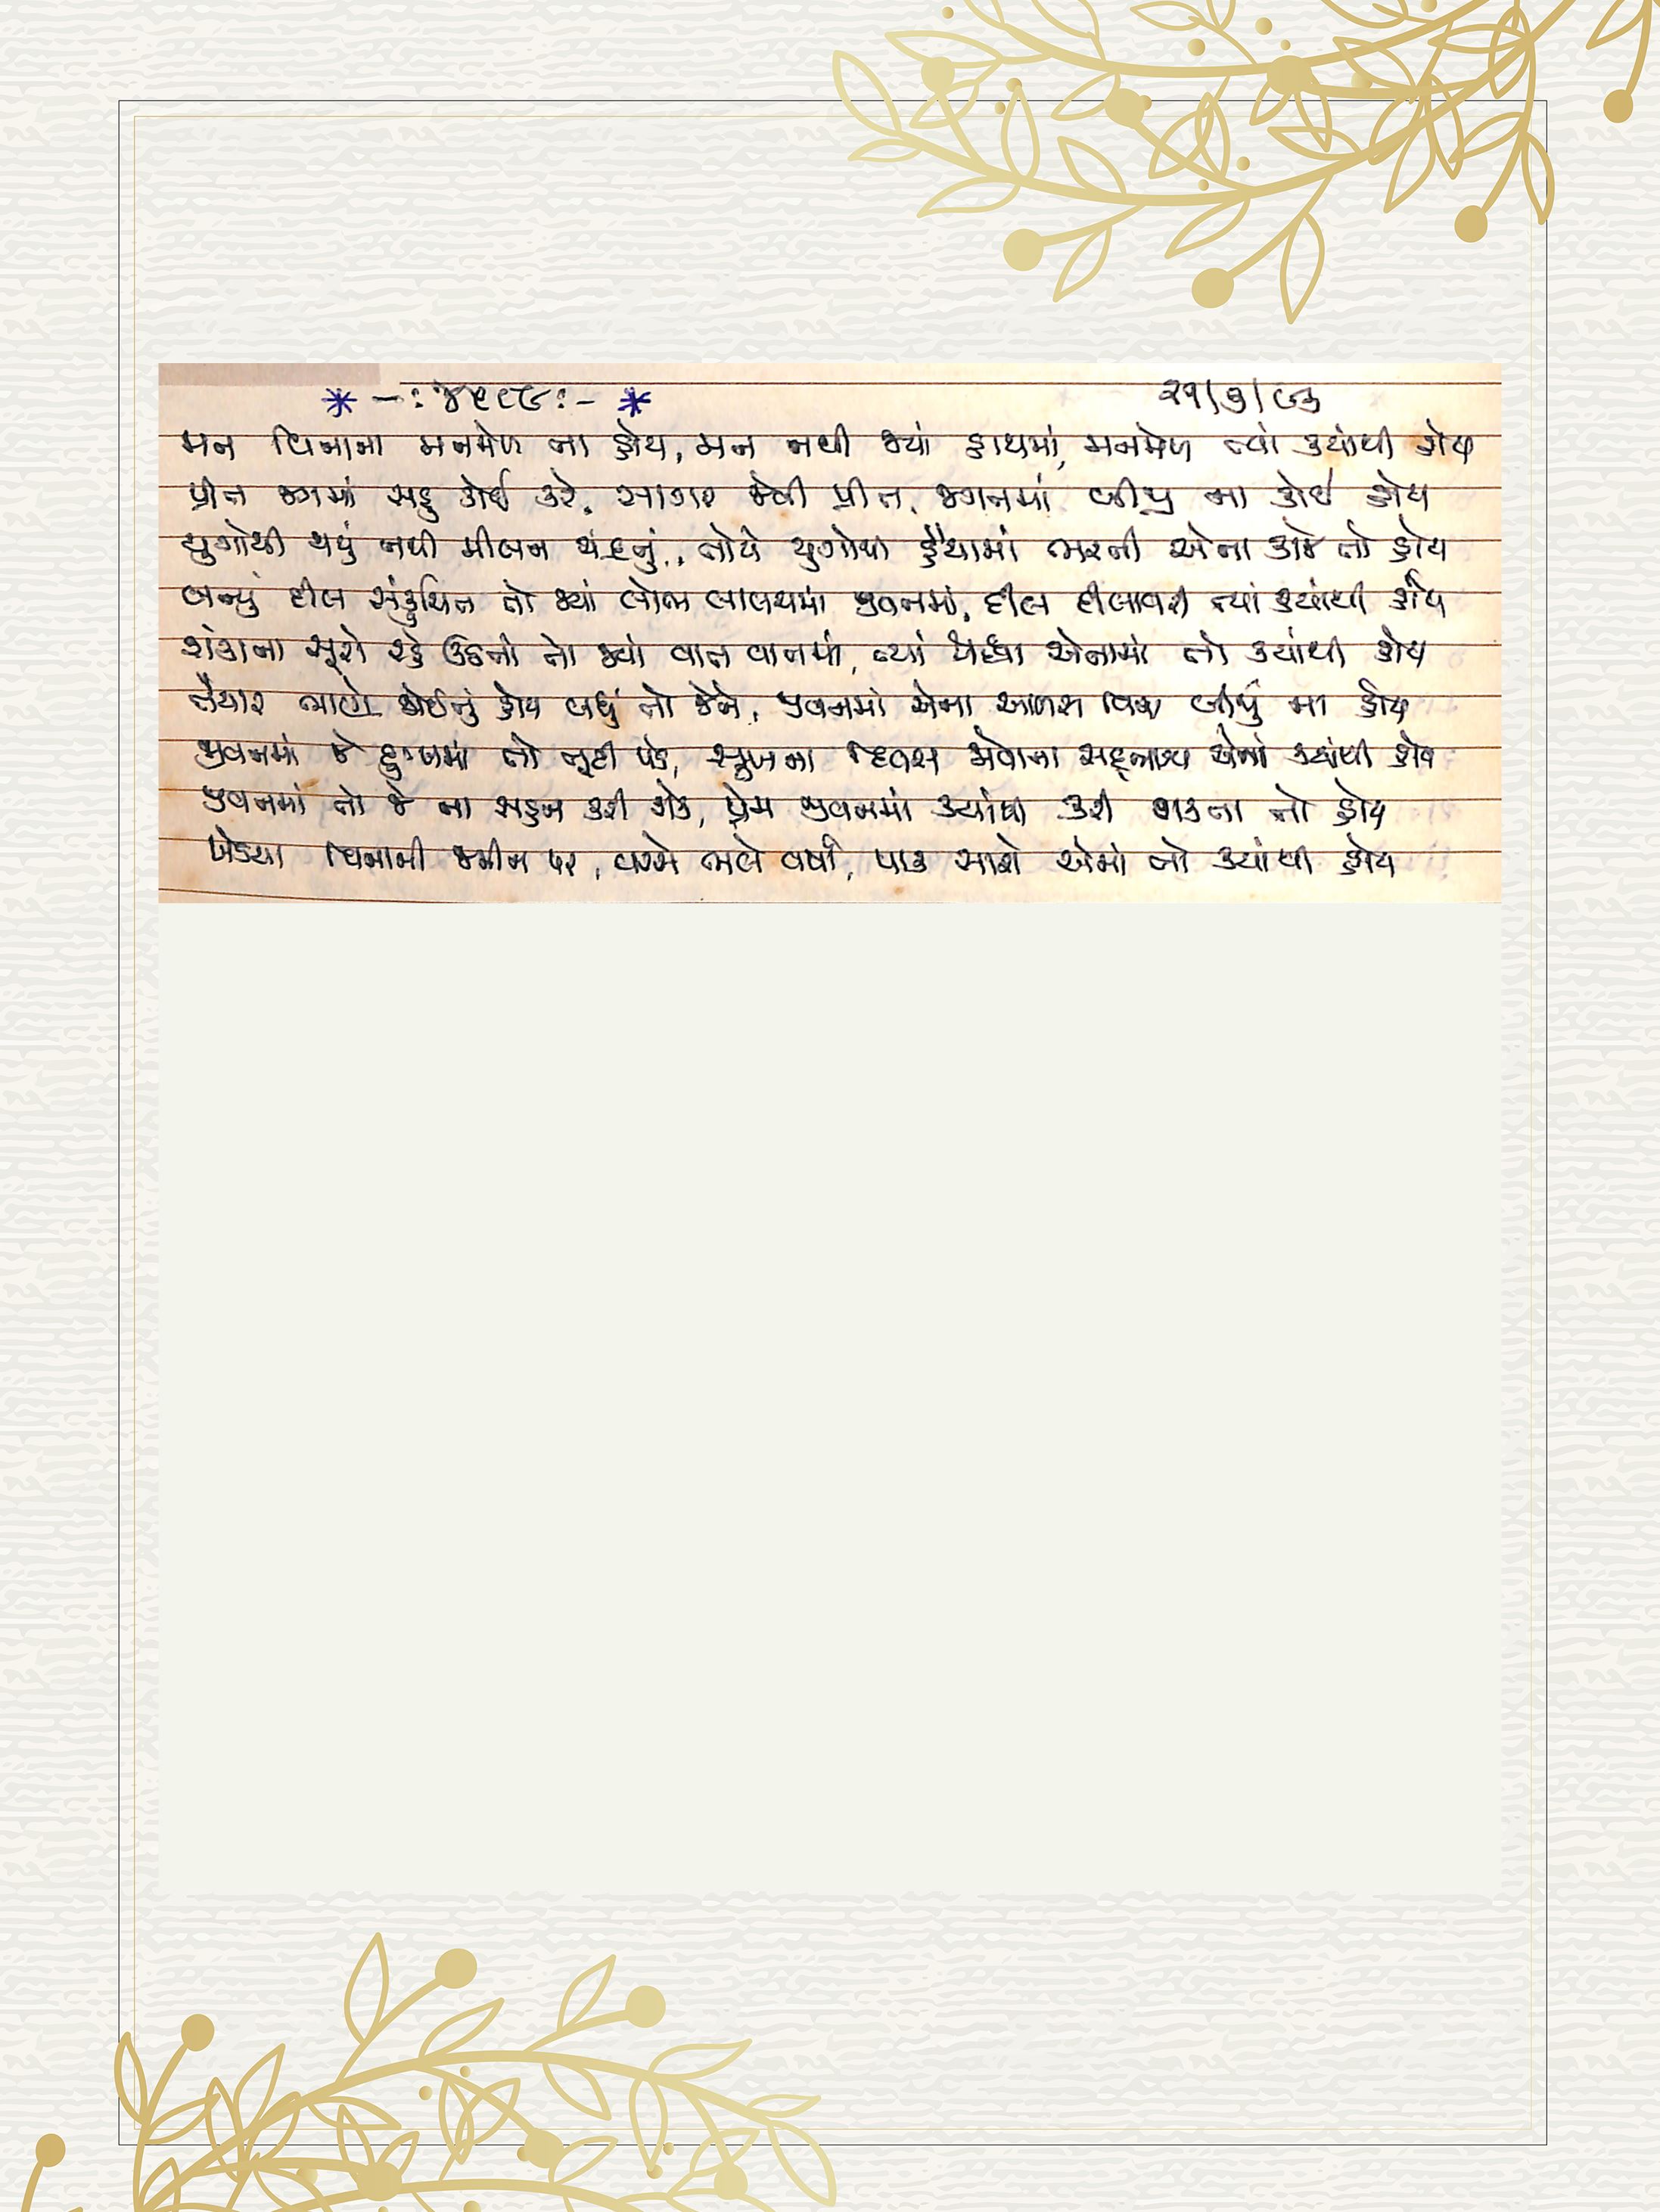 * -: ૪૫૯૯ :- * ૨૧/૩/૯૩
મન વિનાના મનમેળ ના હોય, મન નથી જ્યાં હાથમાં, મનમેળ ત્યાં ક્યાંથી હોય
પ્રીત જગમાં સહુ કોઈ કરે, સાગર જેવી પ્રીત, જગતમાં બીજી ના કોઈ હોય
યુગોથી થયું નથી મીલન ચંદ્રનું, તોયે યુગોથી હૈયામાં ભરતી એના કાજે તો હોય
બન્યું દીલ સંકુચિત તો જ્યાં લોભ લાલચમાં જીવનમાં, દીલ દીલાવરી ત્યાં ક્યાંથી હોય
શંકાના સૂરો રહે ઉઠતો તો જ્યાં વાત વાતમાં, ત્યાં શ્રદ્ધા એનામાં તો ક્યાંથી હોય
તૈયાર ભાણે જોઈતું હોય બધું તો જેને, જીવનમાં એના આળસ વિના બીજું ના હોય
જીવનમાં જે દુઃખમાં તો તૂટી પડે, સુખના દિવસ જોવાના સદ્દભાગ્ય એના ક્યાંથી હોય
જીવનમાં તો જે ના સહન કરી શકે, પ્રેમ જીવનમાં ક્યાંથી કરી શકતા તો હોય
ખેડયા વિનાની જમીન પર, વરસે ભલે વર્ષા, પાક સારો એમાં તો ક્યાંથી હોય